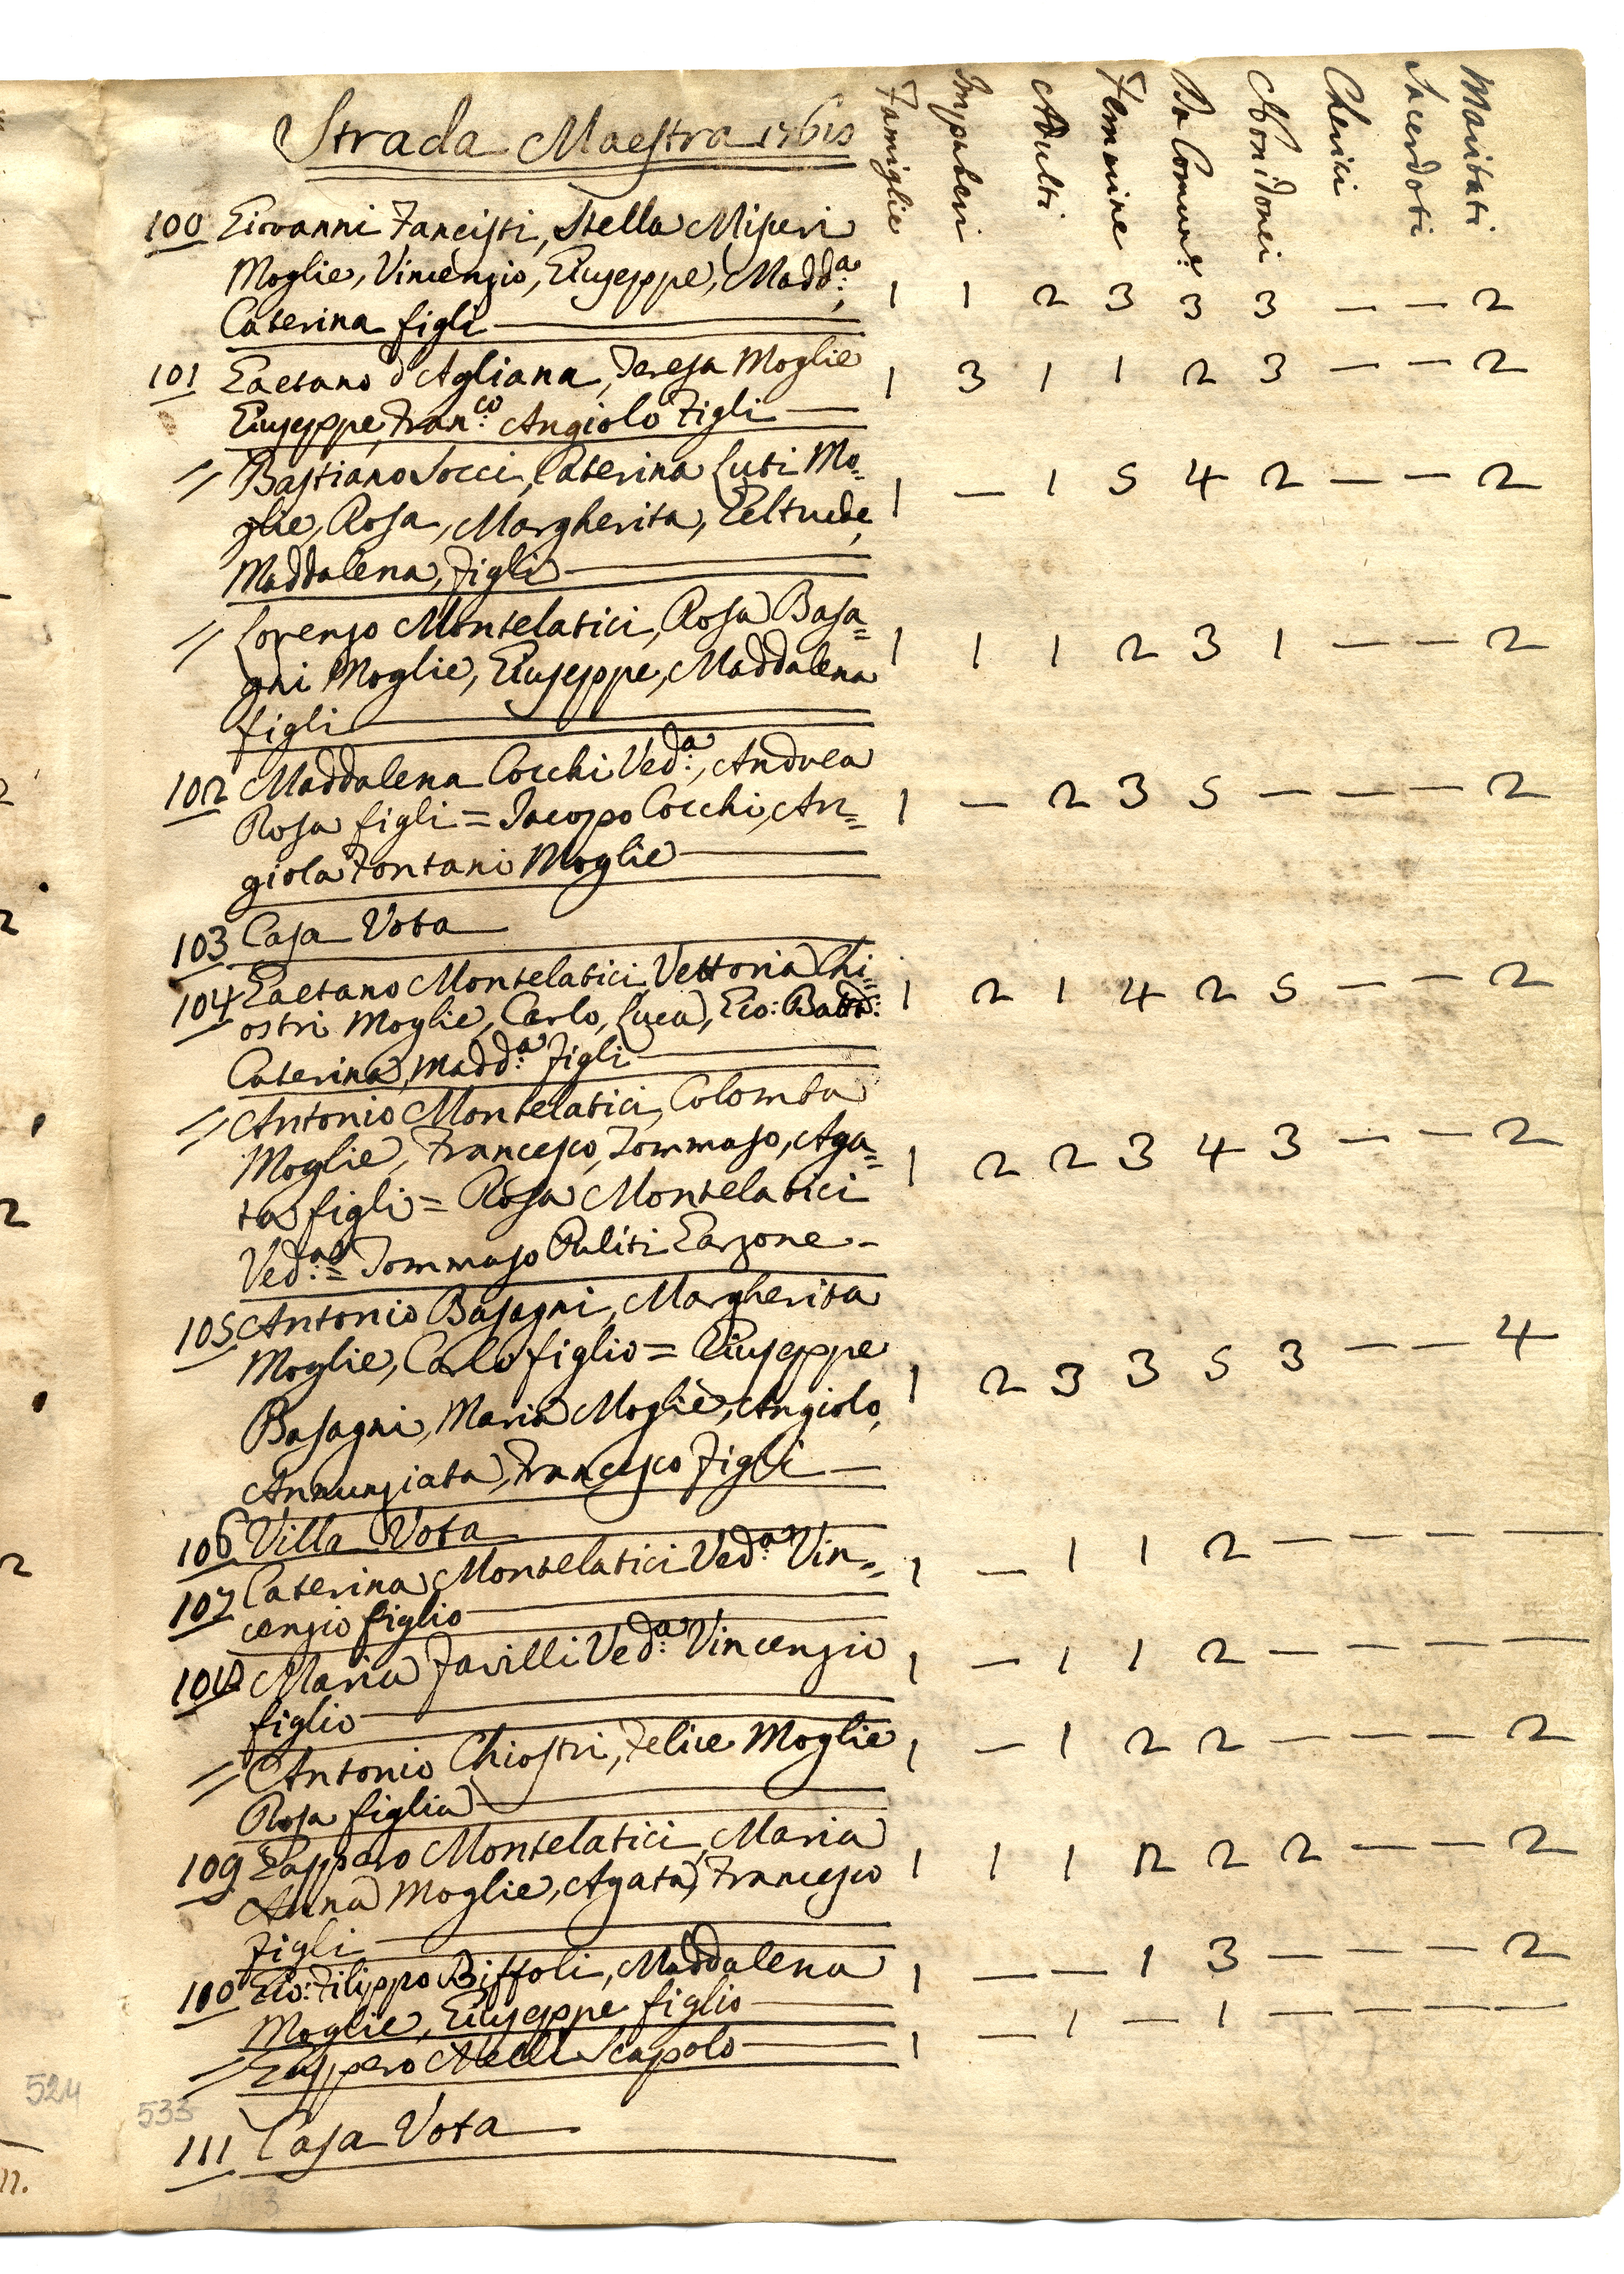 Strada Maestra 1761
Famiglie Impuberi Adulti Femmine Da Comun.e Non idonei Cherici Sacerdoti Maritati
100 Giovanni Fancisti, Stella Miseri
Moglie, Vincenzio, Giuseppe, Madd.a, 1 1 2 3 3 3 — — 2
Caterina figli
101 Gaetano d'Agliana, Teresa Moglie 1 3 1 1 2 3 — — 2
Giuseppe, Fran.co Angiolo Figli
// Bastiano Socci, Caterina Luti Mo= 1 — 1 5 4 2 — — 2
glie, Rosa, Margherita, Geltrude,
Maddalena, Figli
// Lorenzo Montelatici, Rosa Basa= 1 1 1 2 3 1 — — 2
gni Moglie, Giuseppe, Maddalena
figli
102 Maddalena Cocchi Ved.a, Andrea
Rosa figli = Jacopo Cocchi, An= 1 — 2 3 5 — — — 2
giola Fontani Moglie
103 Casa Vota
104 Gaetano Montelatici Vettoria Chi= 1 2 1 4 2 5 — — 2
ostri Moglie, Carlo, Luca, Gio: Batt:
Caterina, Madd.a Figli
// Antonio Montelatici, Colomba
Moglie, Francesco, Tommaso, Aga= 1 2 2 3 4 3 — — 2
ta figli = Rosa Montelatici
Ved.a = Tommaso Puliti Garzone
105 Antonio Basagni, Margherita
Moglie, Carlo figlio = Giuseppe 1 2 3 3 5 3 — — 4
Basagni, Maria Moglie, Angiolo,
Annunziata, Francesco Figli
106 Villa Vota
107 Caterina Montelatici Ved.a Vin= 1 — 1 1 2 — — — —
cenzio figlio
108 Maria Favilli Ved.a Vincenzio 1 — 1 1 2 — — — —
figlio
// Antonio Chiostri, Felice Moglie 1 — 1 2 2 — — — 2
Rosa figlia
109 Gasppero Montelatici, Maria 1 1 1 2 2 2 — — 2
Anna Moglie, Agata, Francesco
Figli
110 Gio: Filippo Biffoli, Maddalena 1 — — 1 3 — — — 2
Moglie, Giuseppe figlio
// Gasppero Nelli Scapolo 1 — 1 — 1 — — — —
524
533
111 Casa Vota